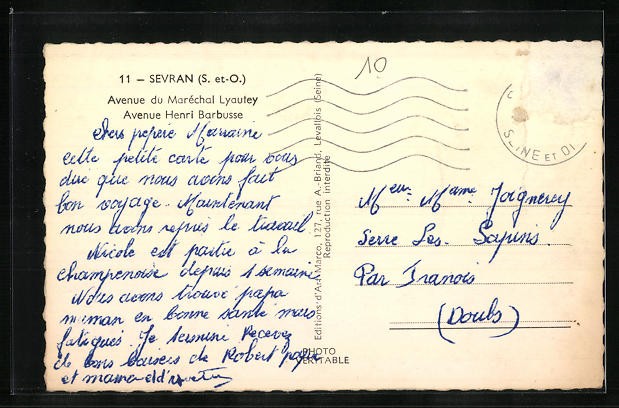 10
11 - SEVRAN (S. et-O.)
Avenue du Maréchal Lyautey
Avenue Henri Barbusse
SEINE ET OI
Chers Marraine
cette petite carte pour vous
dire que nous avons fait
bon voyage. Maintenant
nous avons repris le travail
Nicole est partie à la
champenoise depuis 1 semaine
Nous avons trouvé papa
maman en bonne santé mais
fatigués. Je termine Recevez
de bons baisers de Robert papa
et maman
Editions d'Art Marco, 127, rue A.-Briand, Levallois (Seine)
Reproduction interdite
PHOTO
VERITABLE
Meur Mame
Serre Les Sapins
Par Franois
(Doubs)